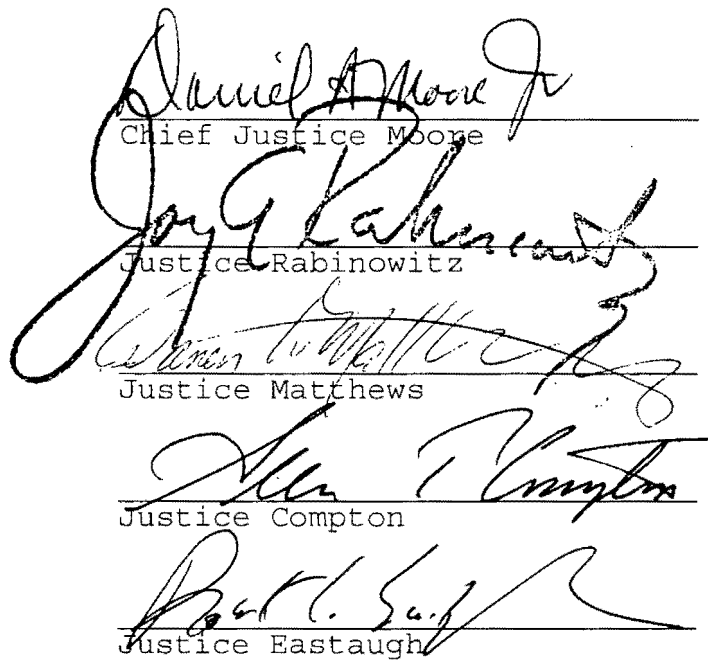 Daniel A Moore Jr
Chief Justice Moore
Jay A Rabinowitz
Justice Rabinowitz
Warren W Matthews
Justice Matthews
Allen T Compton
Justice Compton
Robert L. Eastaugh
Justice Eastaugh